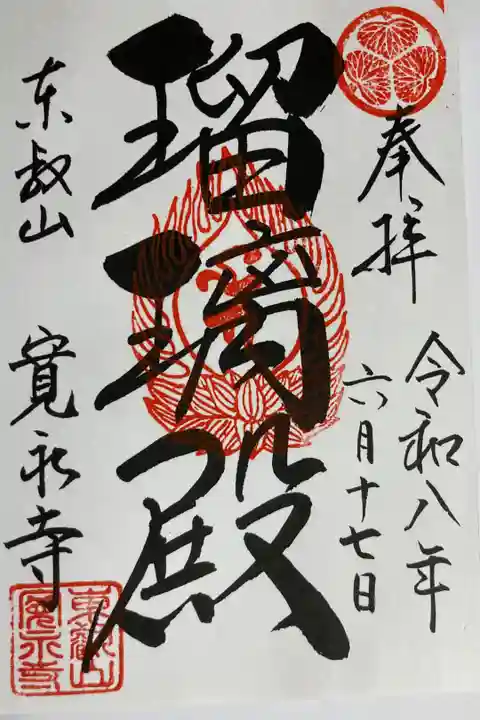 奉拝
令和八年
六月十七日
瑠璃殿
東叡山 寛永寺
東叡山
寛永寺